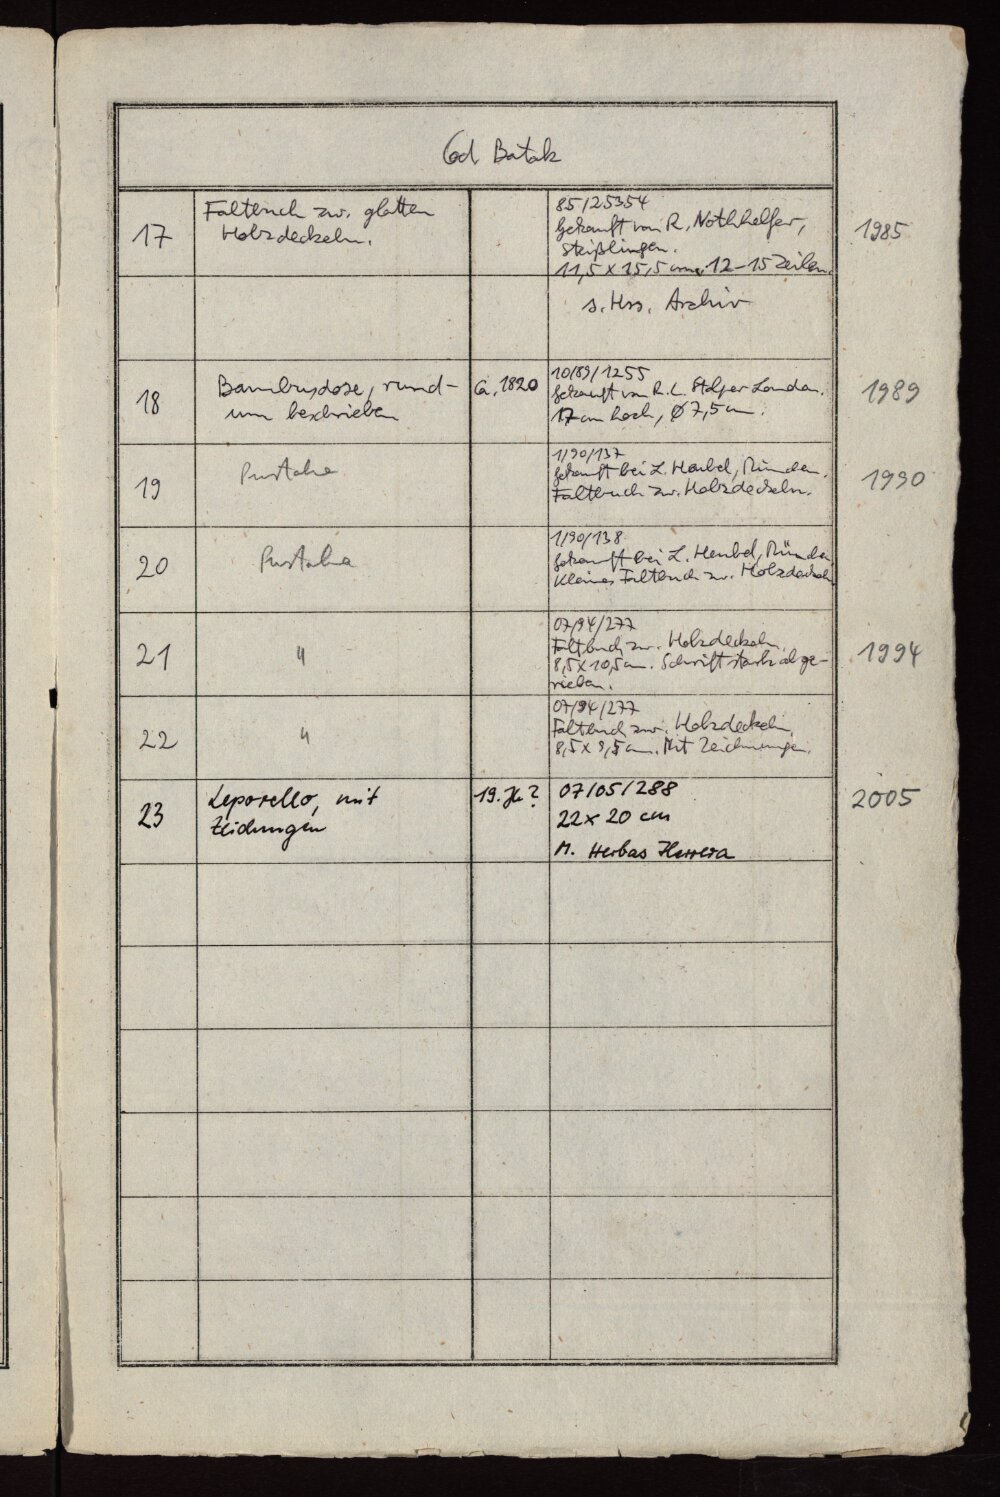 Cod Batak
17
Faltbuch zw. glatten
Holzdeckeln.
85/25354
Gekauft von R. Nothhelfer,
Steißlingen.
11,5 x 15,5 cm, 12-15 Zeilen.
1985
s. Hss. Archiv
18
Bambusdose, rund-
um beschrieben
Ca. 1820
10/89/1255
Gekauft von R. C. London.
17 cm hoch, Ø 7,5 cm.
1989
19
Pustaha
1/90/137
Gekauft bei L. Heubel,
Faltbuch zw. Holzdeckeln.
1990
20
Pustaha
1/90/138
Gekauft bei L. Heubel,
Kleines Faltbuch zw. Holzdeckeln
21
"
07/94/277
Faltbuch zw. Holzdeckeln,
8,5 x 10,5 cm. Schrift stark abge-
rieben.
1994
22
"
07/94/277
Faltbuch zw. Holzdeckeln,
8,5 x 9,5 cm. Mit Zeichnungen.
23
Leporello, mit
Zeichnungen
19. Jh?
07/05/288
22 x 20 cm
M. Herbas Herrera
2005